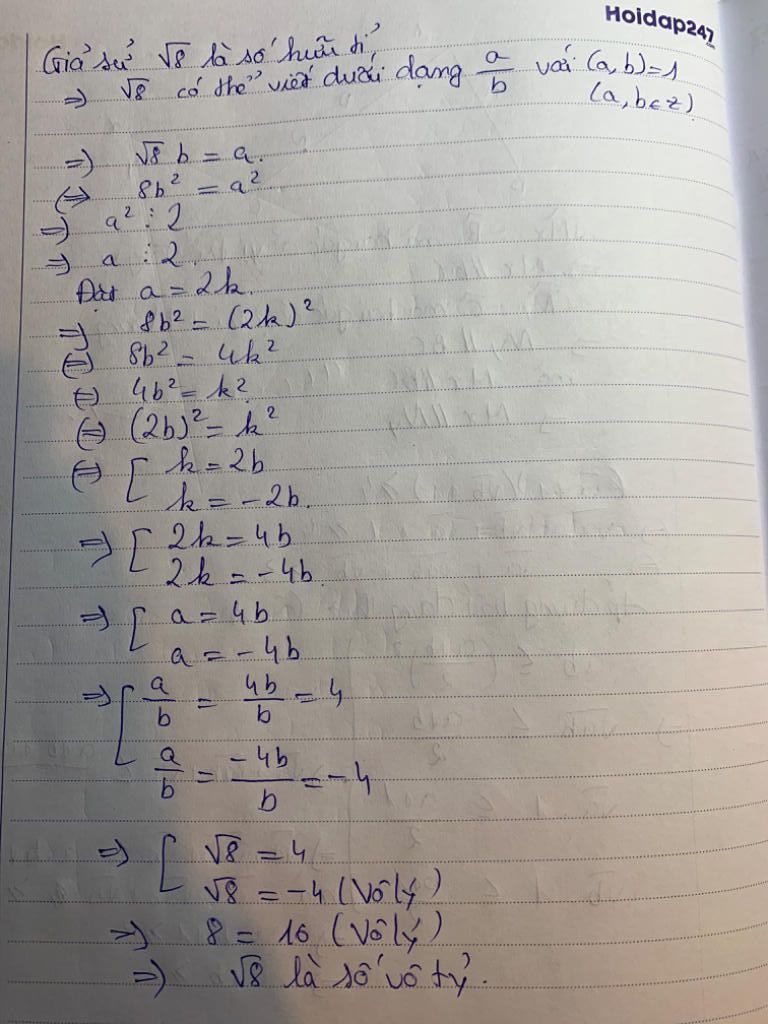 Hoidap247
Giả sử √8 là số hữu tỉ
=> √8 có thể viết dưới dạng a/b với (a,b)=1
(a, b ∈ z)
=> √8 b = a.
<=> 8b² = a²
=> a² ⋮ 2
=> a ⋮ 2.
Đặt a = 2k.
=> 8b² = (2k)²
<=> 8b² = 4k²
<=> 4b² = k².
<=> (2b)² = k²
<=> [ k = 2b
k = -2b.
=> [ 2k = 4b
2k = -4b.
=> [ a = 4b
a = -4b
=> [ a/b = 4b/b = 4
a/b = -4b/b = -4
=> [ √8 = 4
√8 = -4 (Vô lý)
=> 8 = 16 (Vô lý)
=> √8 là số vô tỷ.